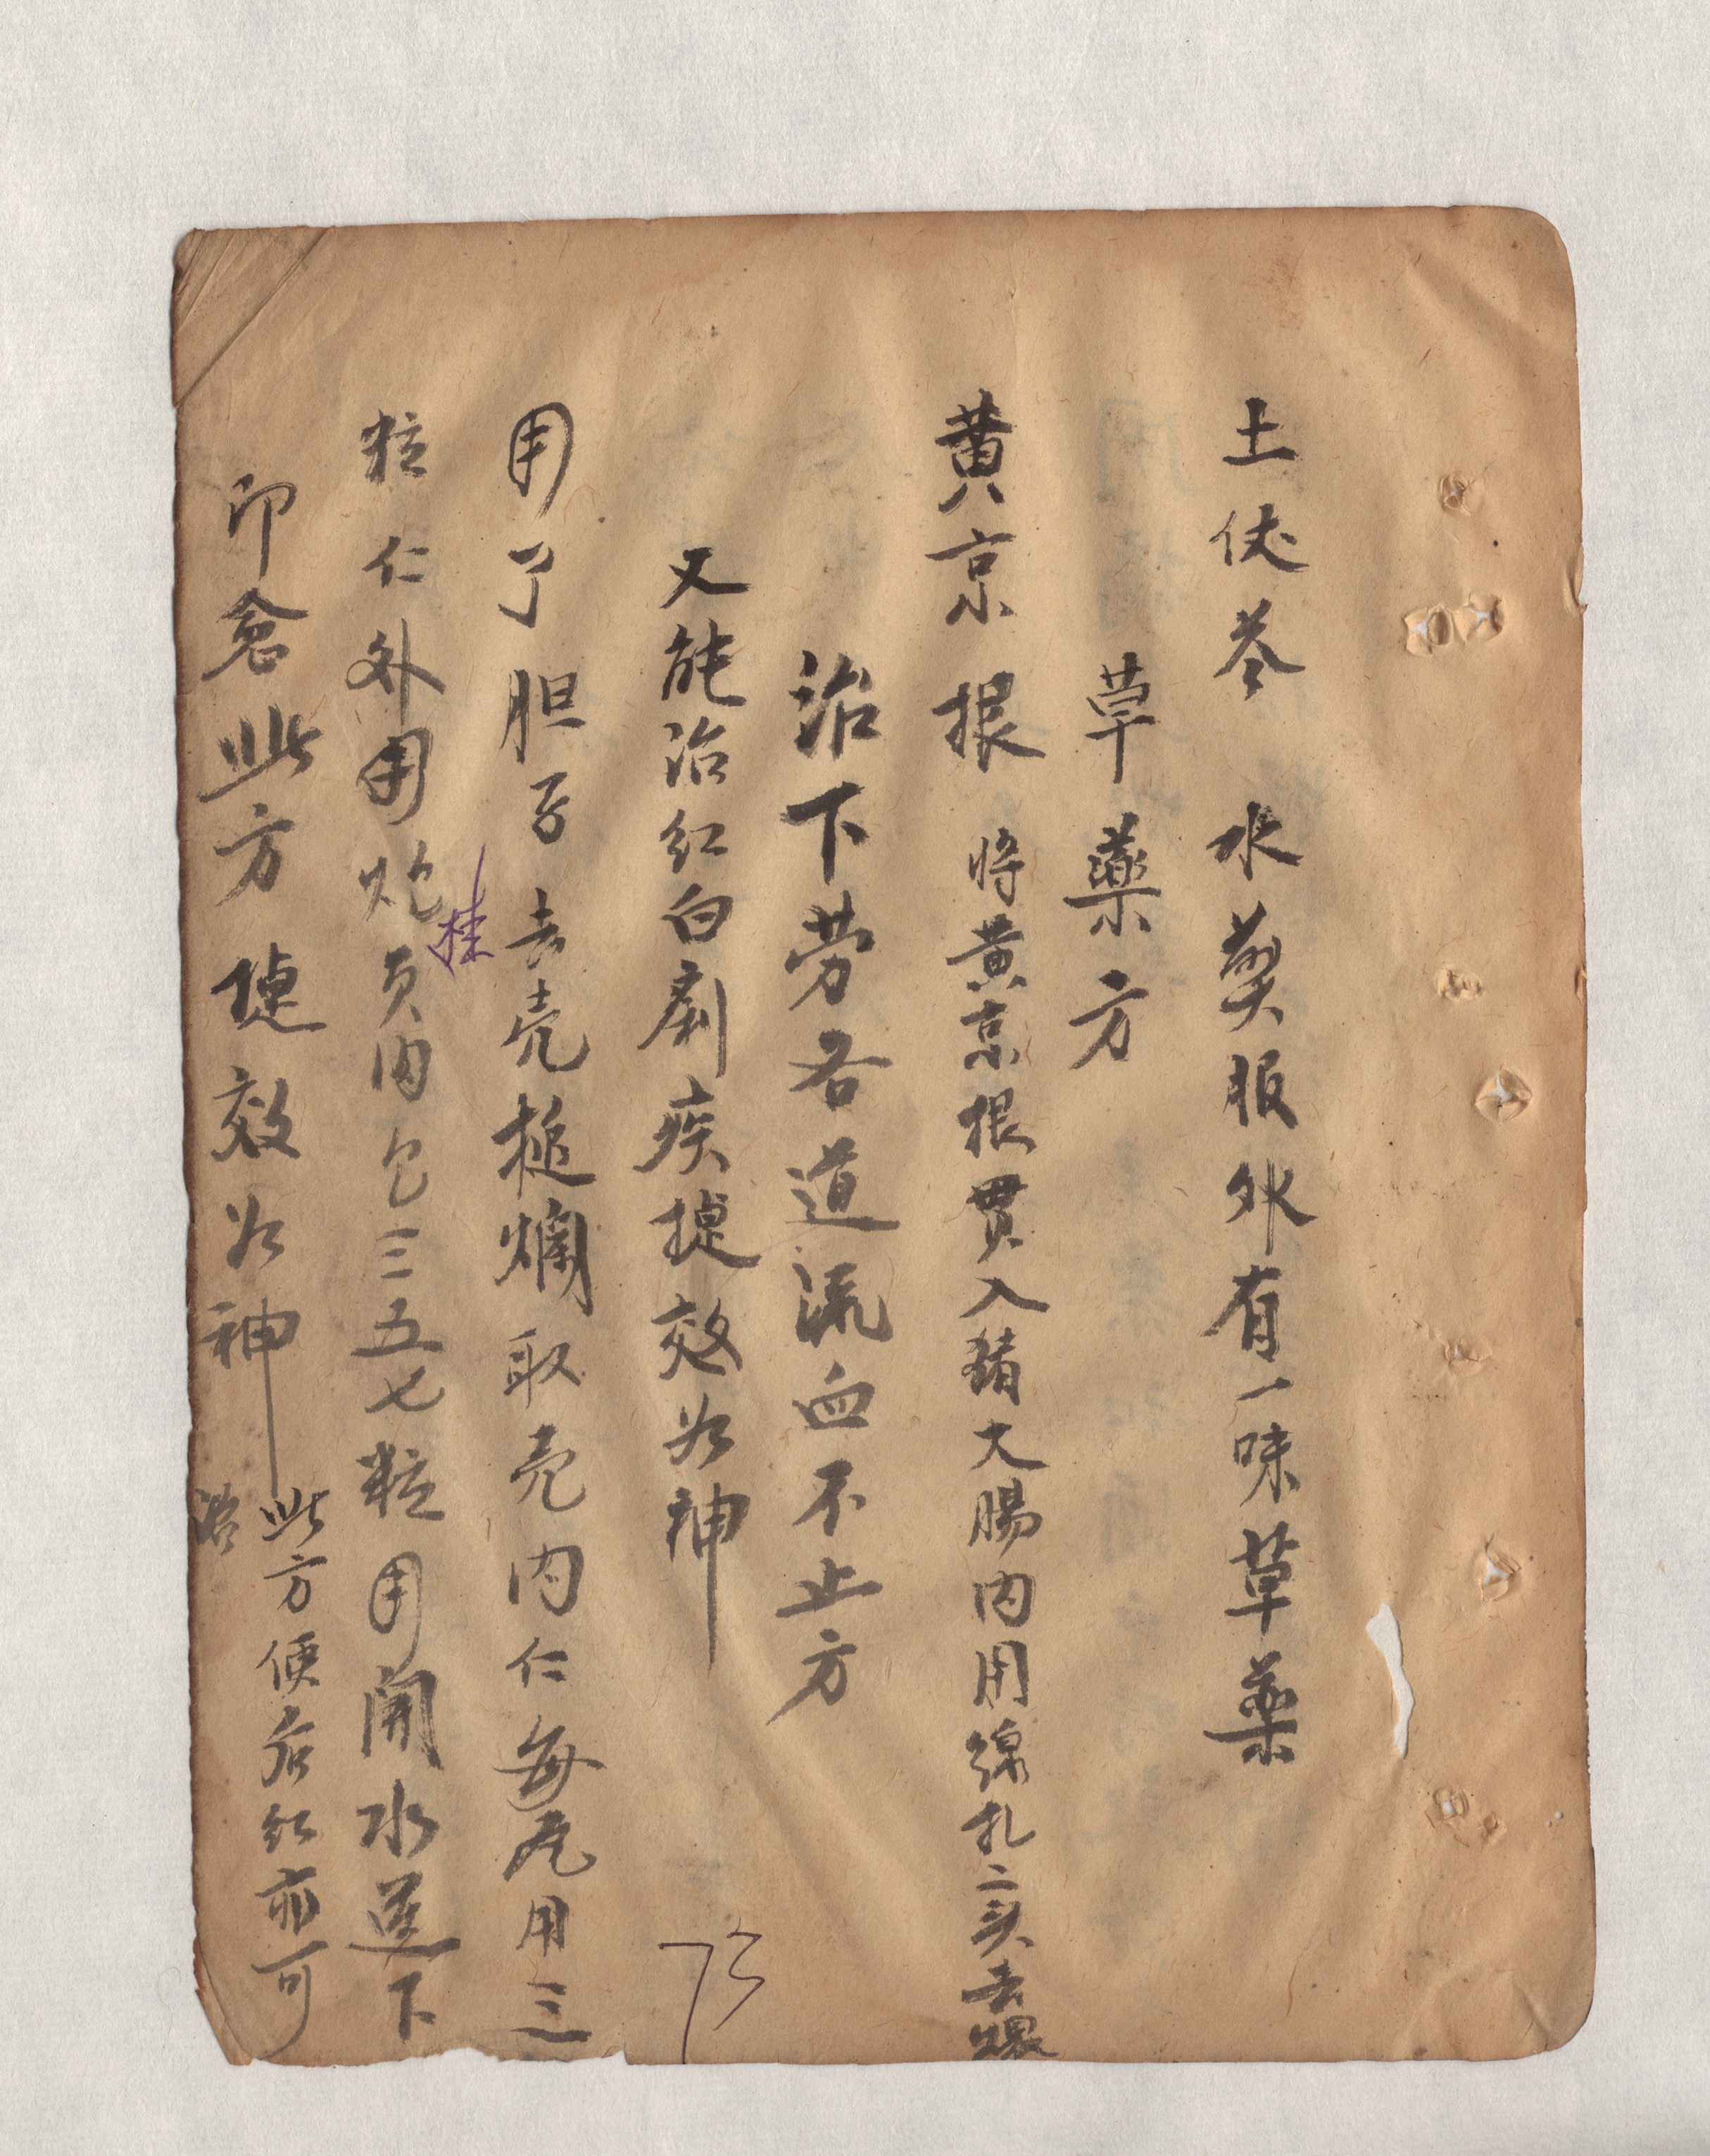 土伏苓 水煎服外有一味草薬
草薬方
黄京根 将黄京根贯入猪大腸内用線扎二头去煨
治下劳各道流血不止方
又能治红白痢疾捷效为神
用了胆子去壳槌爛取壳内仁每尼用三
粒仁外用炮桂页内包三五七粒用開水送下
印愈此方捷效为神 此方便后红亦可
治
73